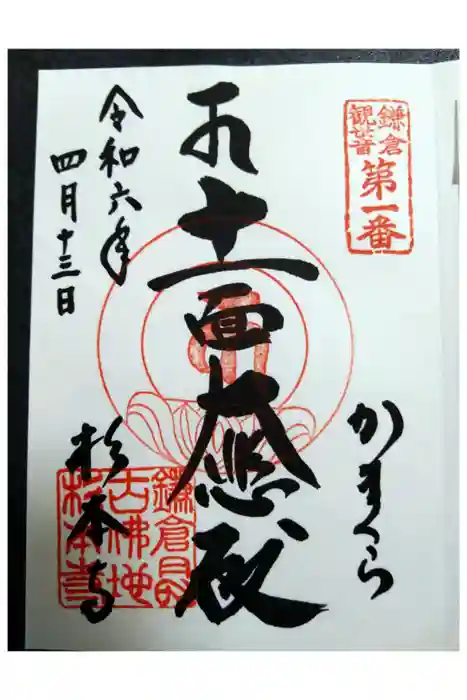 鎌倉
観世音
第一番
かまくら
十一面大悲殿
令和六年
四月十三日
杉本寺
鎌倉
古佛地
杉本寺